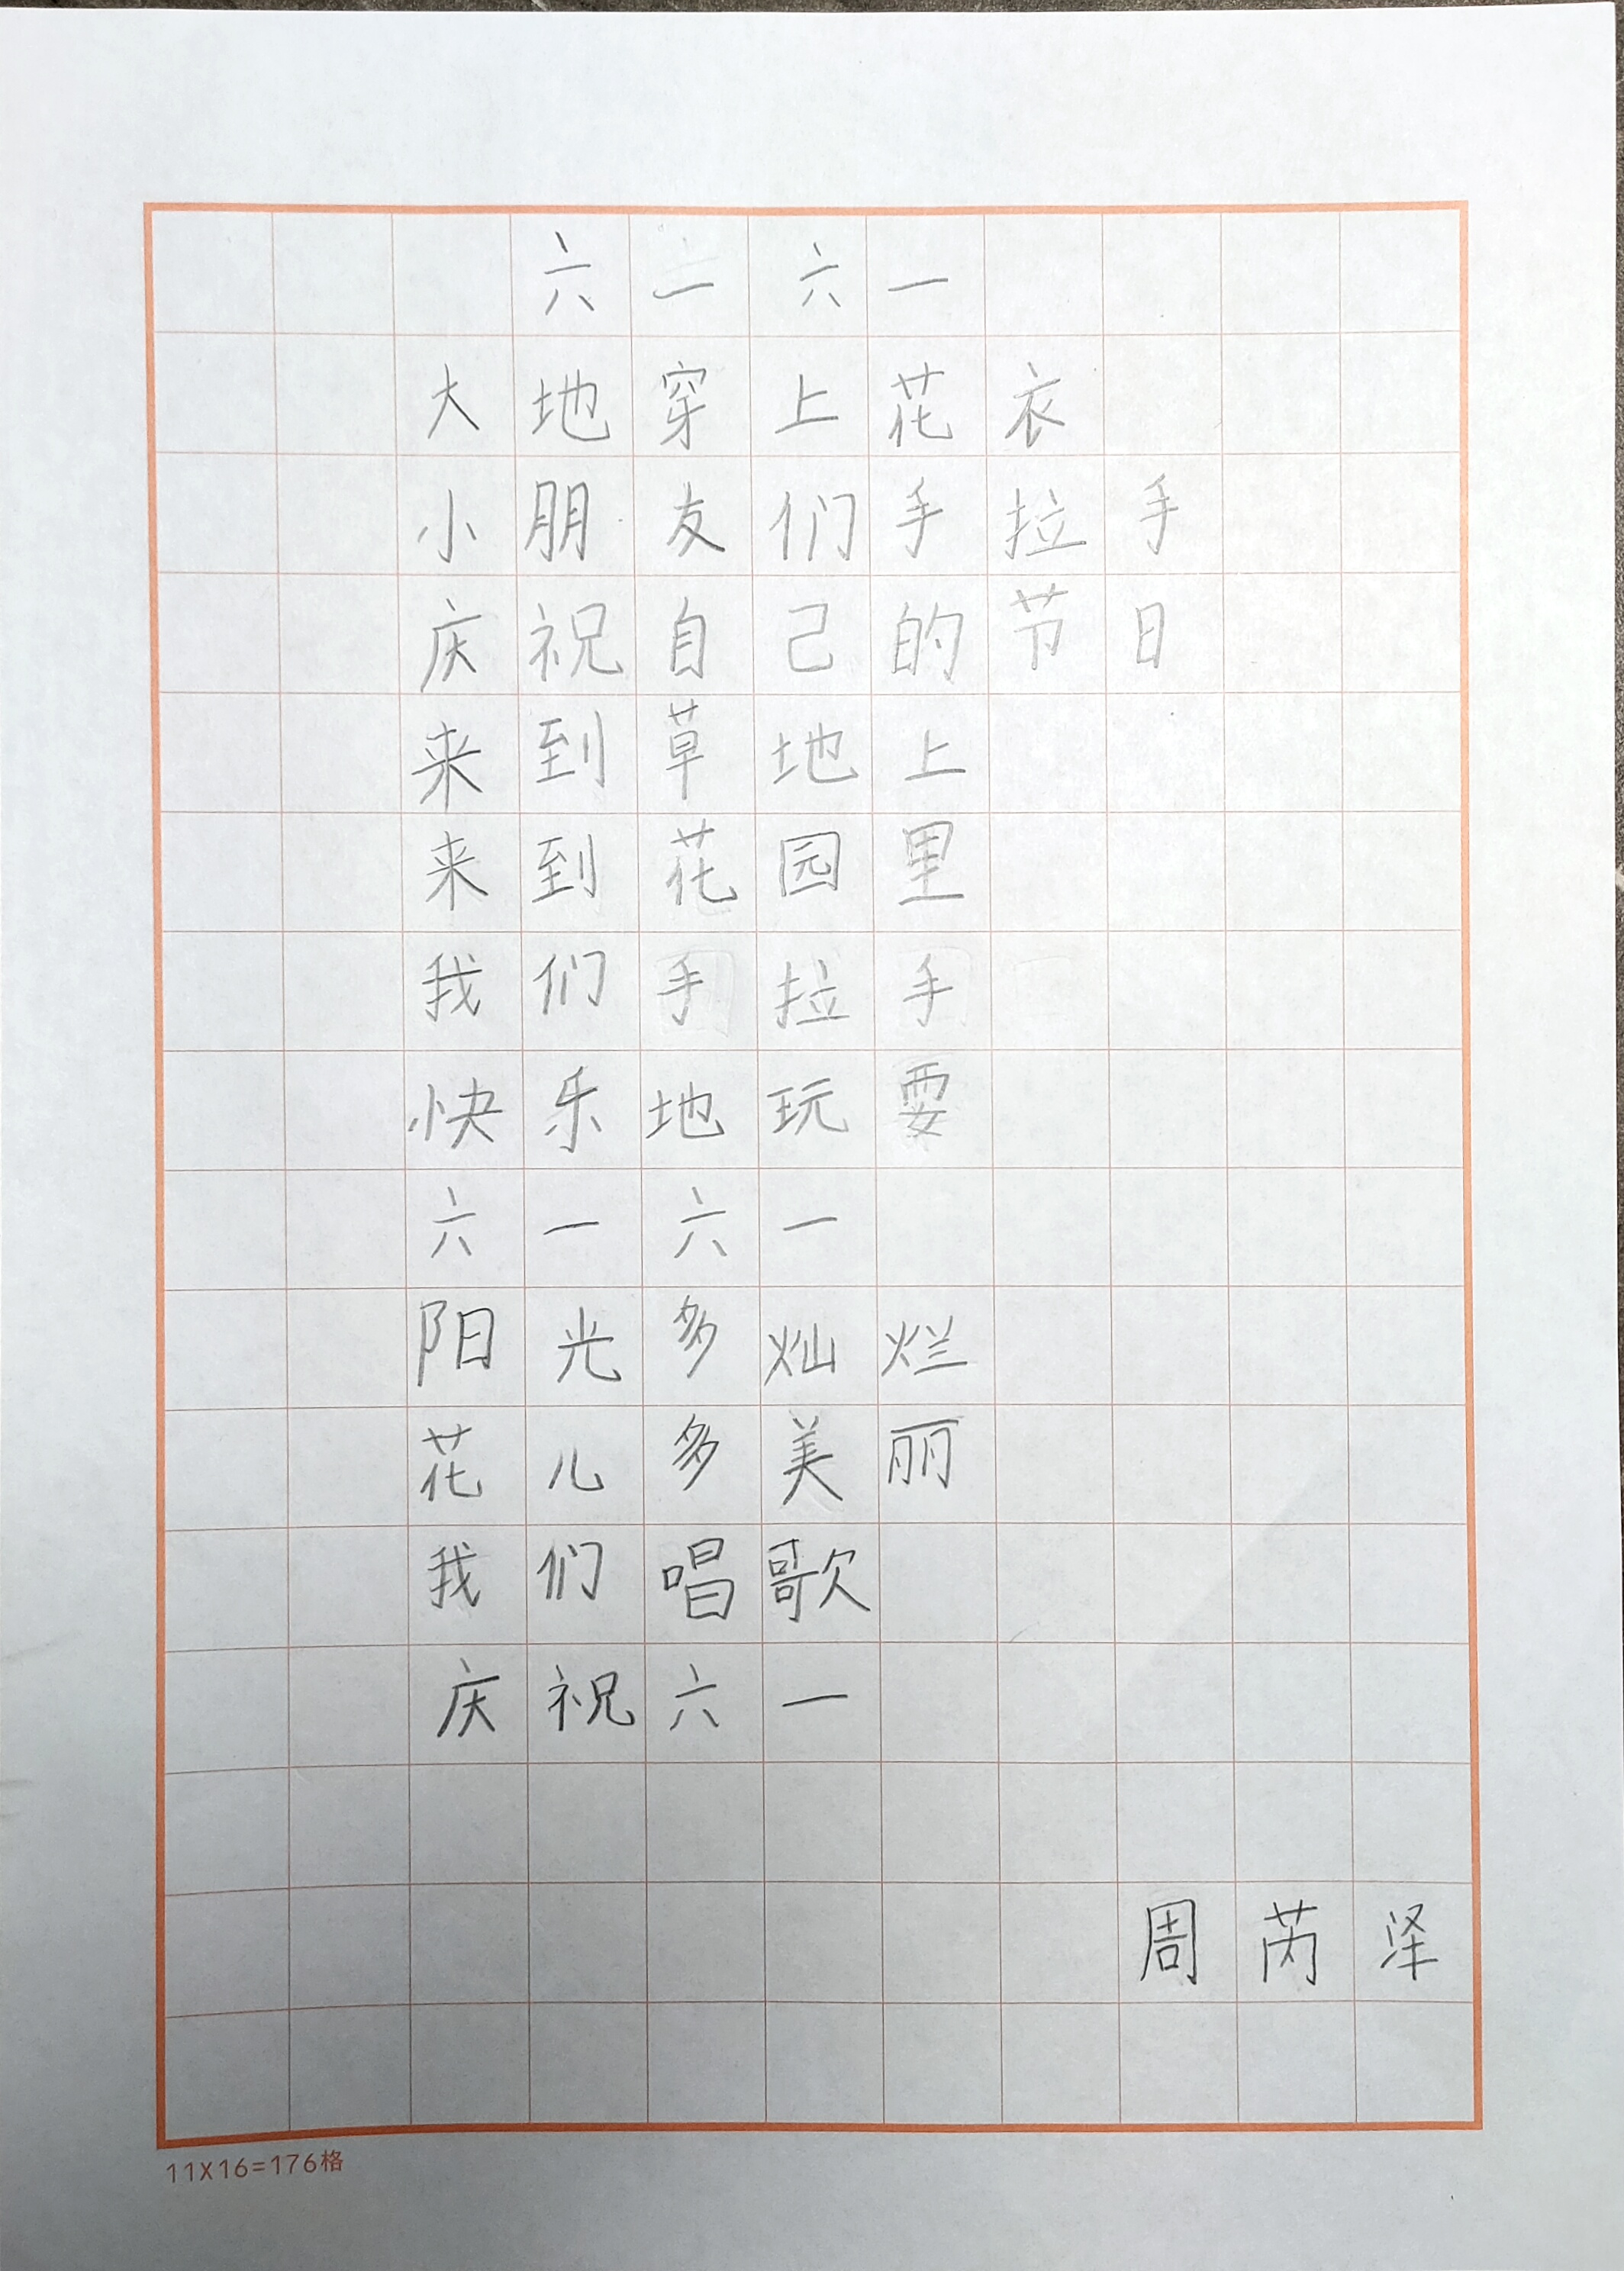 六一六一
大地穿上花衣
小朋友们手拉手
庆祝自己的节日
来到草地上
来到花园里
我们手拉手
快乐地玩耍
六一六一
阳光多灿烂
花儿多美丽
我们唱歌
庆祝六一
周芮泽
11X16=176格